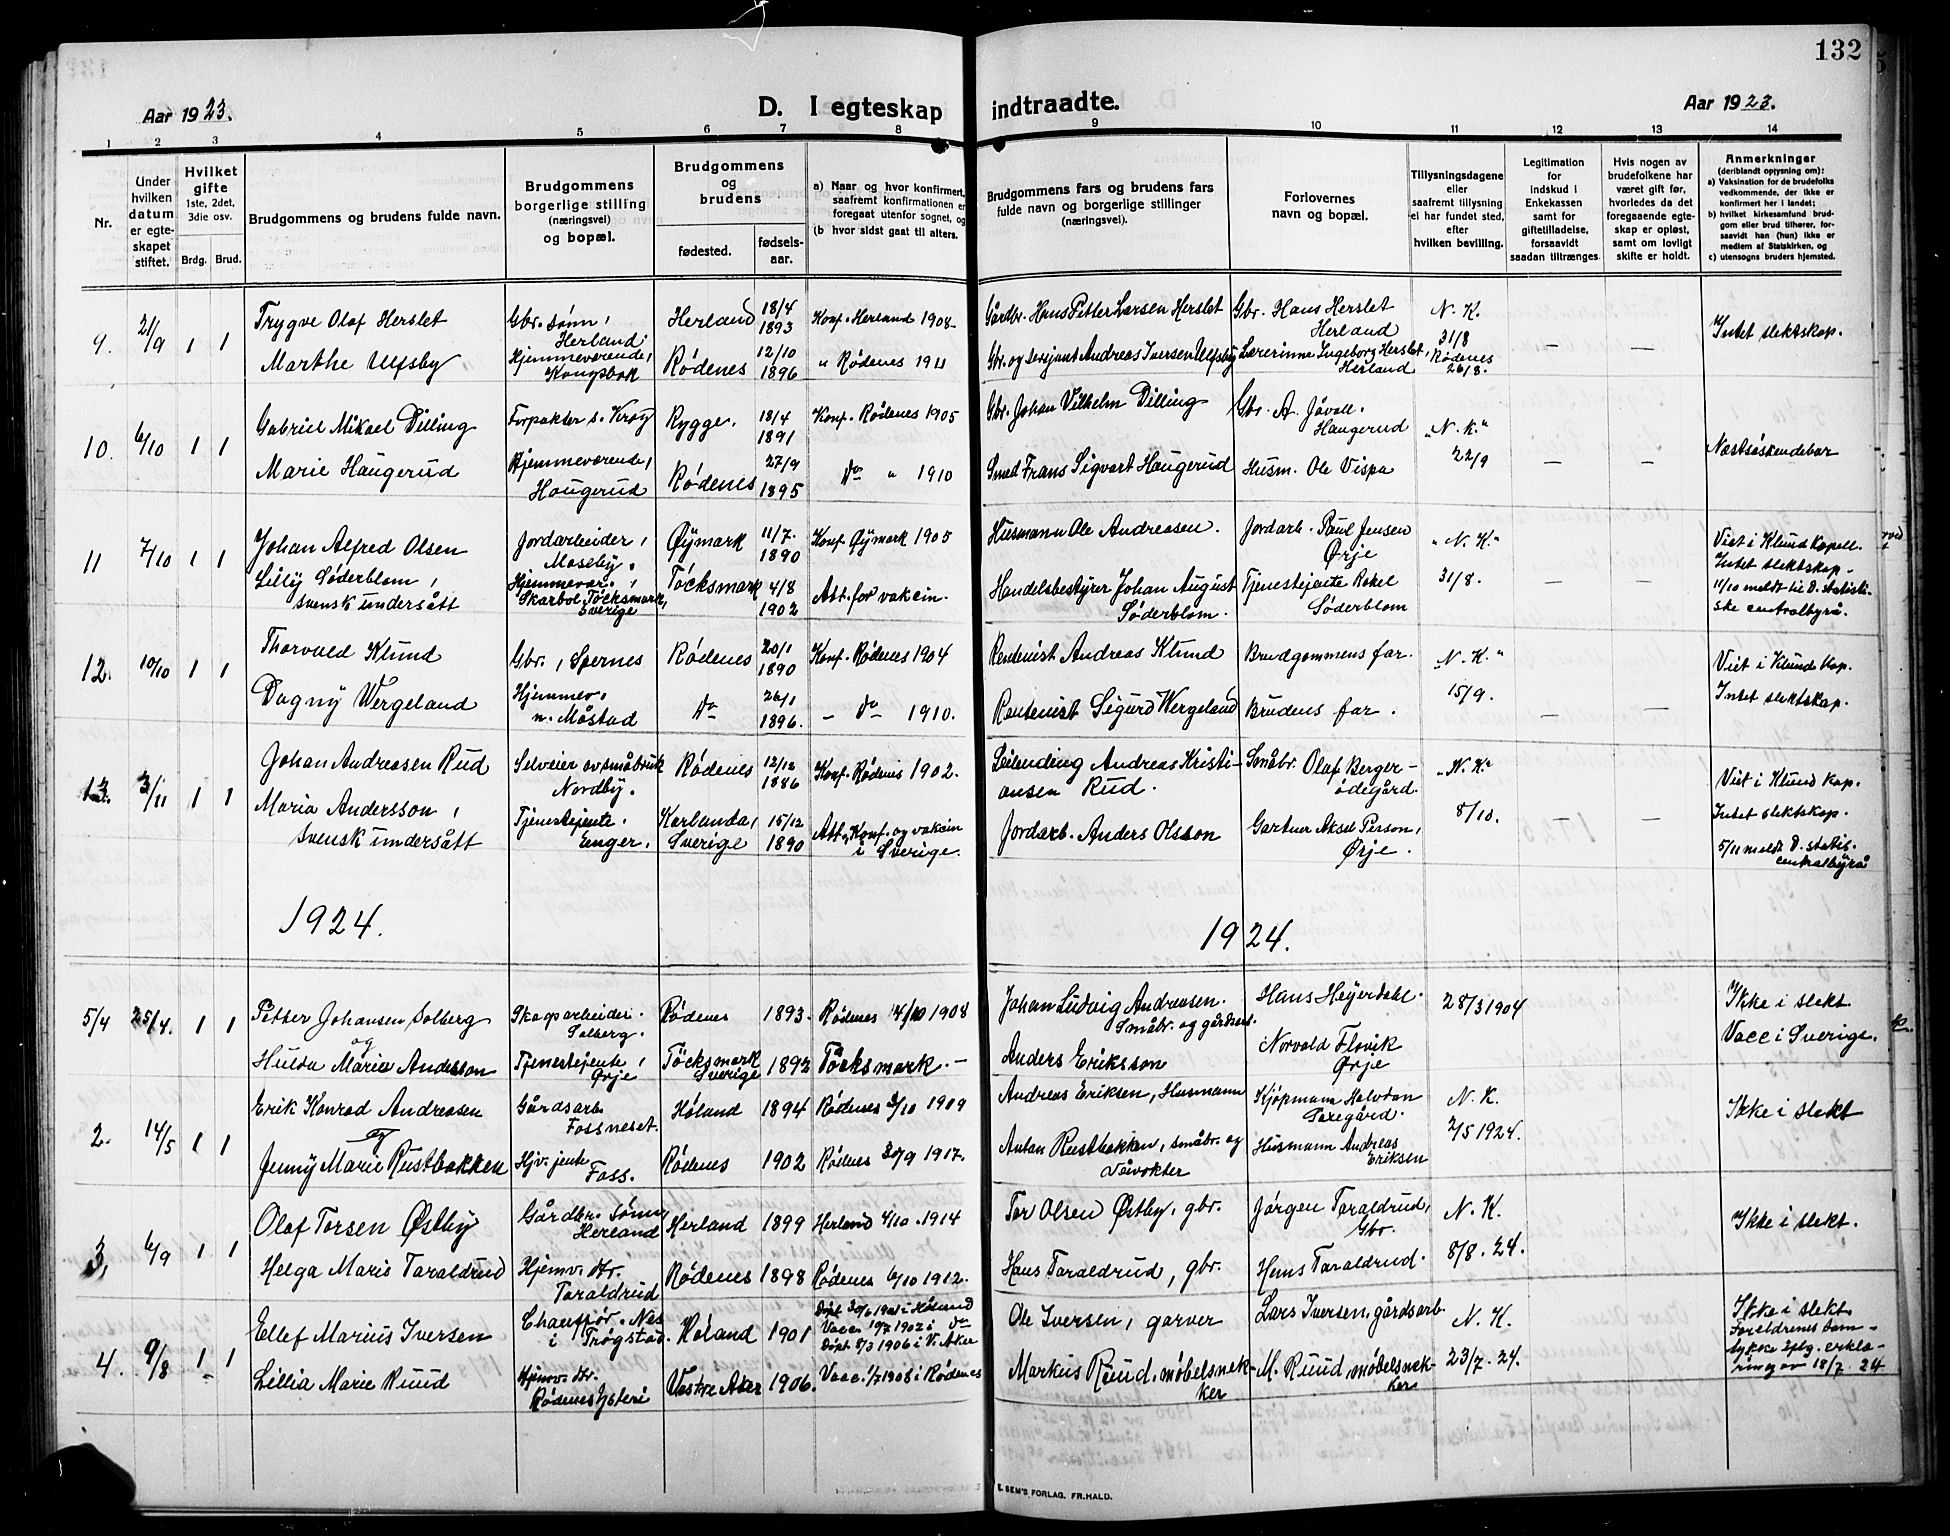 132
Aar 1923.
D. I egteskap indtraadte.
Aar 1923.
1 2 3 4 5 6 7 8 9 10 11 12 13 14
Nr.
Under hvilken datum er egteskapet stiftet.
Hvilket gifte 1ste, 2det, 3die osv.
Brdg. Brud.
Brudgommens og brudens fulde navn.
Brudgommens borgerlige stilling (næringsvei) og bopæl.
Brudgommens og brudens
fødested.
fødsels-aar.
a) Naar og hvor konfirmert, saafremt konfirmationen er foregaat utenfor sognet, og
(b hvor sidst gaat til alters.
Brudgommens fars og brudens fars fulde navn og borgerlige stillinger (næringsvei).
Forlovernes navn og bopæl.
Tillysningsdagene eller saafremt tillysning ei har fundet sted, efter hvilken bevilling.
Legitimation for indskud i Enkekassen samt for giftetilladelse, forsaavidt saadan tiltrænges.
Hvis nogen av brudefolkene har været gift før, hvorledes da det foregaaende egteskap er opløst, samt om lovligt skifte er holdt.
Anmerkninger (deriblandt oplysning om):
a) Vaksination for de brudefolks vedkommende, der ikke er konfirmert her i landet;
b) hvilket kirkesamfund brudgom eller brud tilhører, forsaavidt han (hun) ikke er medlem af Statskirken, og
c) utensogns bruders hjemsted.
9. 21/9 1 1
Trygve Olaf Herslet
Gbr. sønn, Herland
Herland 18/4 1893
Konf. Herland 1908
Gårdbr. Hans Petter Larsen Herslet
Gbr. Hans Herslet Herland
N. K. 31/8 Rødenes 26/8.
— —
Intet slektskap.
Marthe Ulfsby
Hjemmeværende, Kongsbok
Rødenes 12/10 1896
" Rødenes 1911
Gbr. og Sersjant Andreas Iversen Ulfsby
Lærerinne Ingeborg Herslet, Herland
10. 6/10 1 1
Gabriel Mikael Dilling
Forpakter s. Krog
Rygge. 18/4 1891
Konf. Rødenes 1905
Gbr. Johan Vilhelm Dilling
Gbr. A. Jåvall Haugerud
"N. K." 22/9
— —
Næstsøskendebar
Marie Haugerud
Hjemmeværende, Haugerud
Rødenes 27/9 1895
Do " 1910
Smed Frans Sigvart Haugerud
Husm. Ole Vispa
11 7/10 1 1
Johan Alfred Olsen
Jordarbeider, Moseby.
Øymark 11/7. 1890
Konf. Øymark 1905
Husmann Ole Andreasen.
Jordarb. Paul Jensen Ørje
"N. K." 31/8.
Viet i Klund Kapell.
Intet slektskap.
11/10 meldt til D. statistiske centralbyrå.
Lilly Søderblom, svensk undersått
Hjemmevær., Skarbol, Töcksmark, Sverige
Töcksmark 4/8 1902
Att. for vakcin.
Handelsbestyrer Johan August Søderblom.
Tjenestejente Rakel Søderblom
12. 10/10 1 1
Thorvald Klund
Gbr., Spernes
Rødenes 20/1 1890
Konf. Rødenes 1904
Rentenist Andreas Klund
Brudgommens far.
"N. K." 15/9.
— —
Viet i Klund Kap.
Intet slektskap.
Dagny Wergeland
Hjemmev. n. Måstad
Do 26/1 1896.
" Do 1910.
Rentenist Sigurd Wergeland
Brudens far.
13 3/11 1 1
Johan Andreasen Rud
Selveier av småbruk Nordby.
Rødenes 12/12 1886
Konf. Rødenes 1902.
Leilending Andreas Kristiansen Rud.
Småbr. Olaf Berger-ødegård.
"N. K." 8/10.
— —
Viet i Klund Kap.
Intet slektskap.
5/11 meldt D. statis. centralbyrå
Maria Andersson, svensk undersått
Tjenestejente. Enger.
Karlanda, Sverige 15/12 1890
Att. Konf. og vakcin i Sverige.
Jordarb. Anders Olsson
Gartner Aksel Person, Ørje.
1924.
1924.
5/4 25/4. 1 1
Petter Johansen Solberg
og
Skogsarbeider. Solberg.
Rødenes 1893.
Rødenes 14/10 1908
Johan Ludvig Andreasen. Småbr. og gårdsarb.
Hans Heyerdahl.
28/3 1904
Ikke i slekt
Vacc i Sverige.
Hulda Marie Andersson
Tjenestejente, Ørje
Töcksmark Sverige 1892
Töcksmark. —
Anders Eriksson
Norvald Flovik Ørje
2. 14/5 1 1
Erik Konrad Andreasen
og
Gårdsarb. Fossneset.
Høland 1894
Rødenes 3/10 1909
Andreas Eriksen, Husmann
Kjøpmann Halvdan Faxegård.
N. K. 2/5 1924.
Ikke i slekt
Jenny Marie Rustbakken
Hjv. jente Foss.
Rødenes 1902
Rødenes 30/9 1917.
Anton Rustbakken, småbr. og
Husmann Andreas Eriksen
3, 6/9 1 1
Olaf Torsen Østby
Gårdbr. Sønn, Herland
Herland 1899
Herland 4/10. 1914
Tor Olsen Østby, gbr.
Jørgen Taraldrud, Gbr.
N. K. 8/8. 24.
Ikke i slekt.
Helga Maris Taraldrud
Hjemv. dtr. Taraldrud
Rødenes 1898
Rødenes 6/10 1912.
Hans Taraldrud, gbr.
Hans Taraldrud.
4. 9/8 1 1
Ellef Marius Iversen
Chauffør. Nes i Trøgstad.
Høland 1901
Døpt 30/6 1901 i Høland
Vacc. 19/7 1902 i do
Ole Iversen, garver
Lars Iversen, gårdsarb
N. K. 23/7. 24.
Ikke i slekt.
Foraldrenes samtykke iflg. erklæring av 18/7. 24
Lillia Marie Ruud
Hjemv. dtr. Rødenes Ysteri
Vestre Aker 1906.
Døpt 5/3 1906 i V. Aker
Vacc. 1/7 1908 i Rødenes
Markus Ruud, møbelsnekker
M. Ruud, møbelsnekker
E. SEM'S FORLAG. FR.HALD.